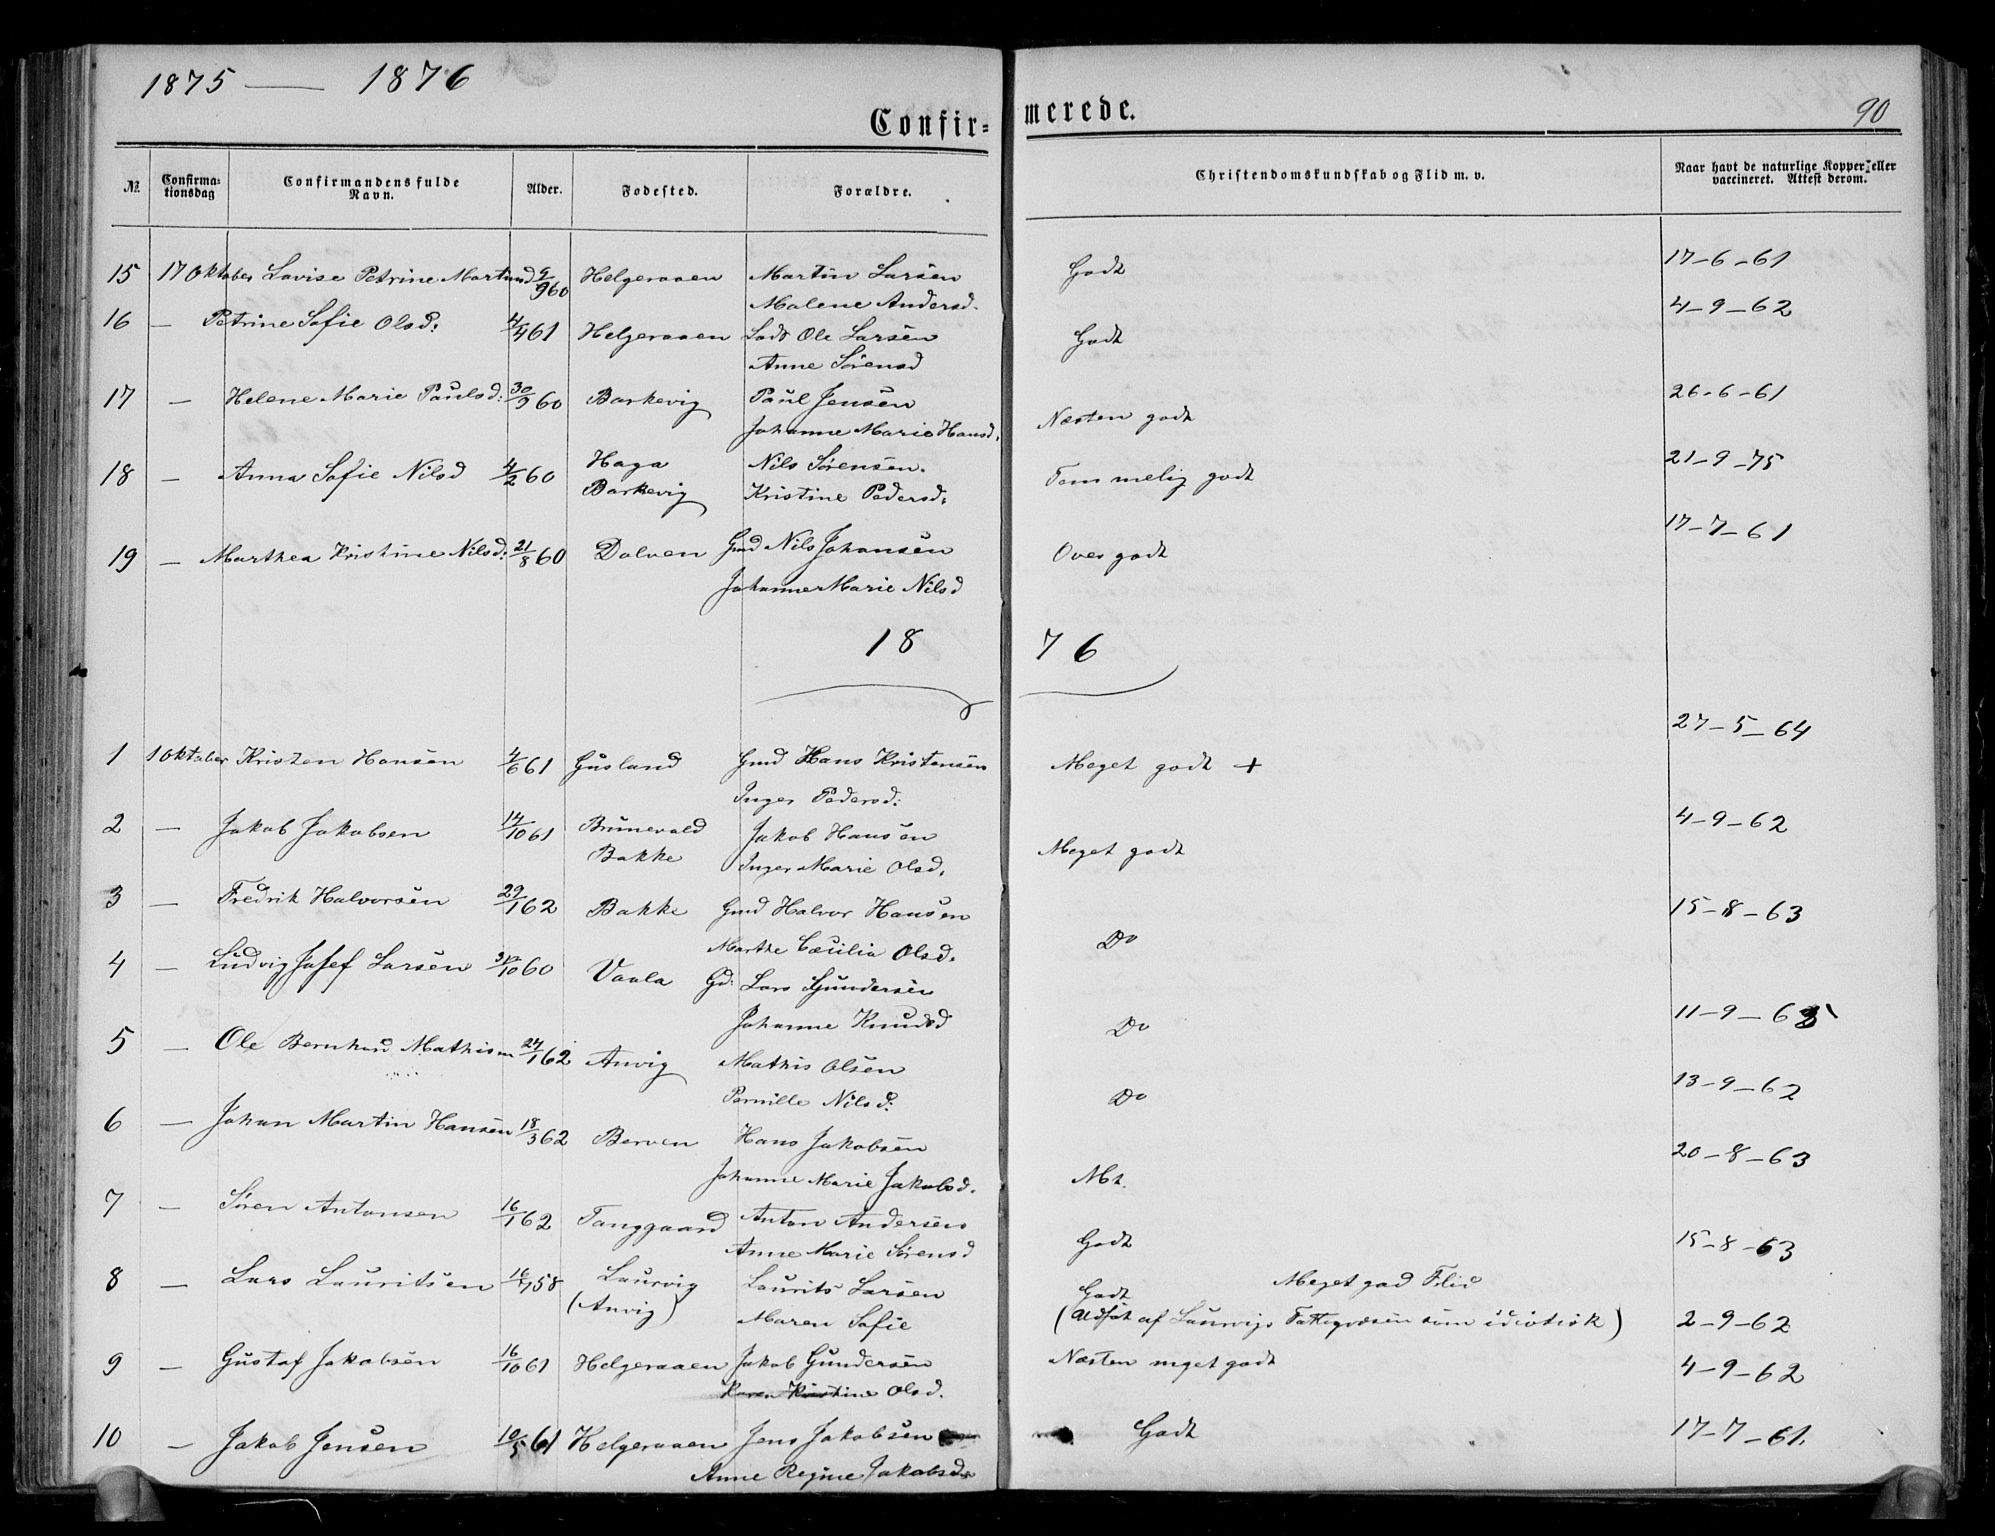 1875 — 1876
Confir=
merede.
90
No.
Confirma-
tionsdag
Confirmandens fulde
Navn.
Alder.
Fødested.
Forældre.
Christendomskundskab og Flid m. v.
Naar havt de naturlige Kopper eller
vaccineret. Attest derom.
15 17 Oktober Lovise Petrine Martinsd 9/9 60 Helgeraaen Martin Larsen Godt 17-6-61
Malene Andersd.
16 — Petrine Sofie Olsd: 4/4 61 Helgeraaen Lods Ole Larsen Godt 4-9-62
Anne Sørensd
17 — Helene Marie Paulsd: 30/9 60 Barkevig Paul Jensen Næsten godt 26-6-61
Johanne Marie Hansd.
18 — Anna Sofie Nilsd 4/2 60 Haga Nils Sørensen. Temmelig godt 21-9-75
Barkevig Kristine Pedersd:
19 — Marthea Kristine Nilsd: 21/8 60 Dolven Gmd Nils Johansen Over godt 17-7-61
Johanne Marie Nilsd
1876
1 1 Oktober Kristen Hansen 4/6 61 Gusland Gmd Hans Kristensen Meget godt + 27-5-64
Inger Pedersd:
2 — Jakob Jakobsen 14/10 61 Brunevald Jakob Hansen Meget godt 4-9-62
Bakke Inger Marie Olsd.
3 — Fredrik Halvorsen 29/1 62 Bakke Gmd Halvor Hansen Do 15-8-63
Marthe Cæcilia Olsd.
4 — Ludvig Josef Larsen 30/10 60 Vaala Gd: Lars Gundersen Do 11-9-65
Johanne Knudsd
5 — Ole Bernhard Mathisen 24/1 62 Anvig Mathis Olsen Do 13-9-62
Pernille Nilsd:
6 — Johan Martin Hansen 18/3 62 Berven Hans Jakobsen Mt. 20-8-63
Johanne Marie Jakobsd.
7 — Søren Antonsen 16/1 62 Tanggaard Anton Andersen Godt 15-8-63
Anne Marie Sørensd
8 — Lars Lauritsen 16/7 58 Laurvig Laurits Larsen Godt Meget god Flid
(Anvig) Maren Sofie (Udsat af Laurvigs Fattigvæsen som idiotisk) 2-9-62
9 — Gustaf Jakobsen 16/10 61 Helgeraaen Jakob Gundersen Næsten meget godt 4-9-62
Karen Kirstine Olsd.
10 — Jakob Jensen 10/5 61 Helgeraaen Jens Jakobsen Godt 17-7-61.
Anne Regine Jakobsd.